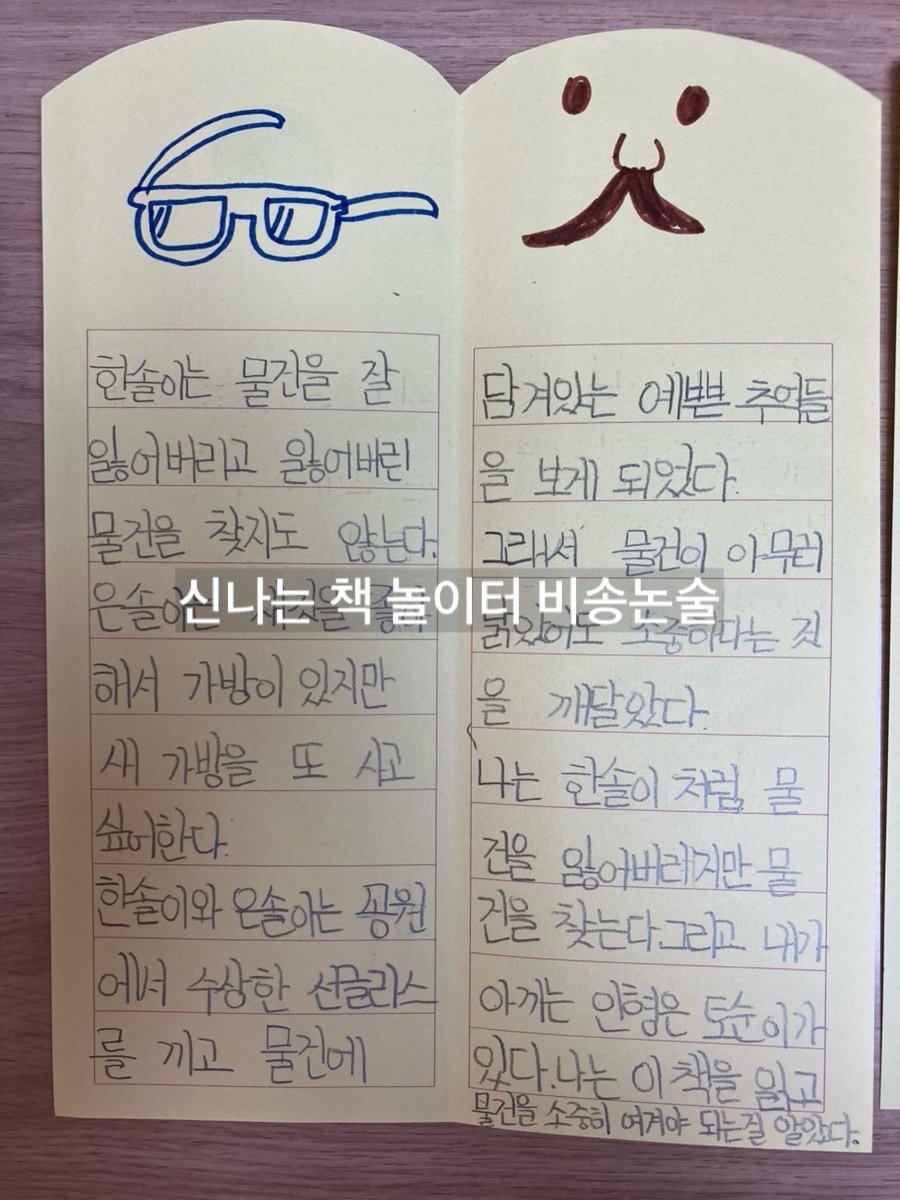 한솔이는 물건을 잘
잃어버리고 잃어버린
물건을 찾지도 않는다.
은솔이는 을
해서 가방이 있지만
새 가방을 또 사고
싶어한다.
한솔이와 은솔이는 공원
에서 수상한 선글라스
를 끼고 물건에
담겨있는 예쁜 추억들
을 보게 되었다.
그래서 물건이 아무리
낡았어도 소중하다는 것
을 깨달았다.
나는 한솔이 처럼 물
건을 잃어버려지만 물
건을 찾는다.그리고 내가
아끼는 인형은 토순이가
있다.나는 이 책을 읽고
물건을 소중히 여겨야 되는걸 알았다.
신나는 책 놀이터 비송논술